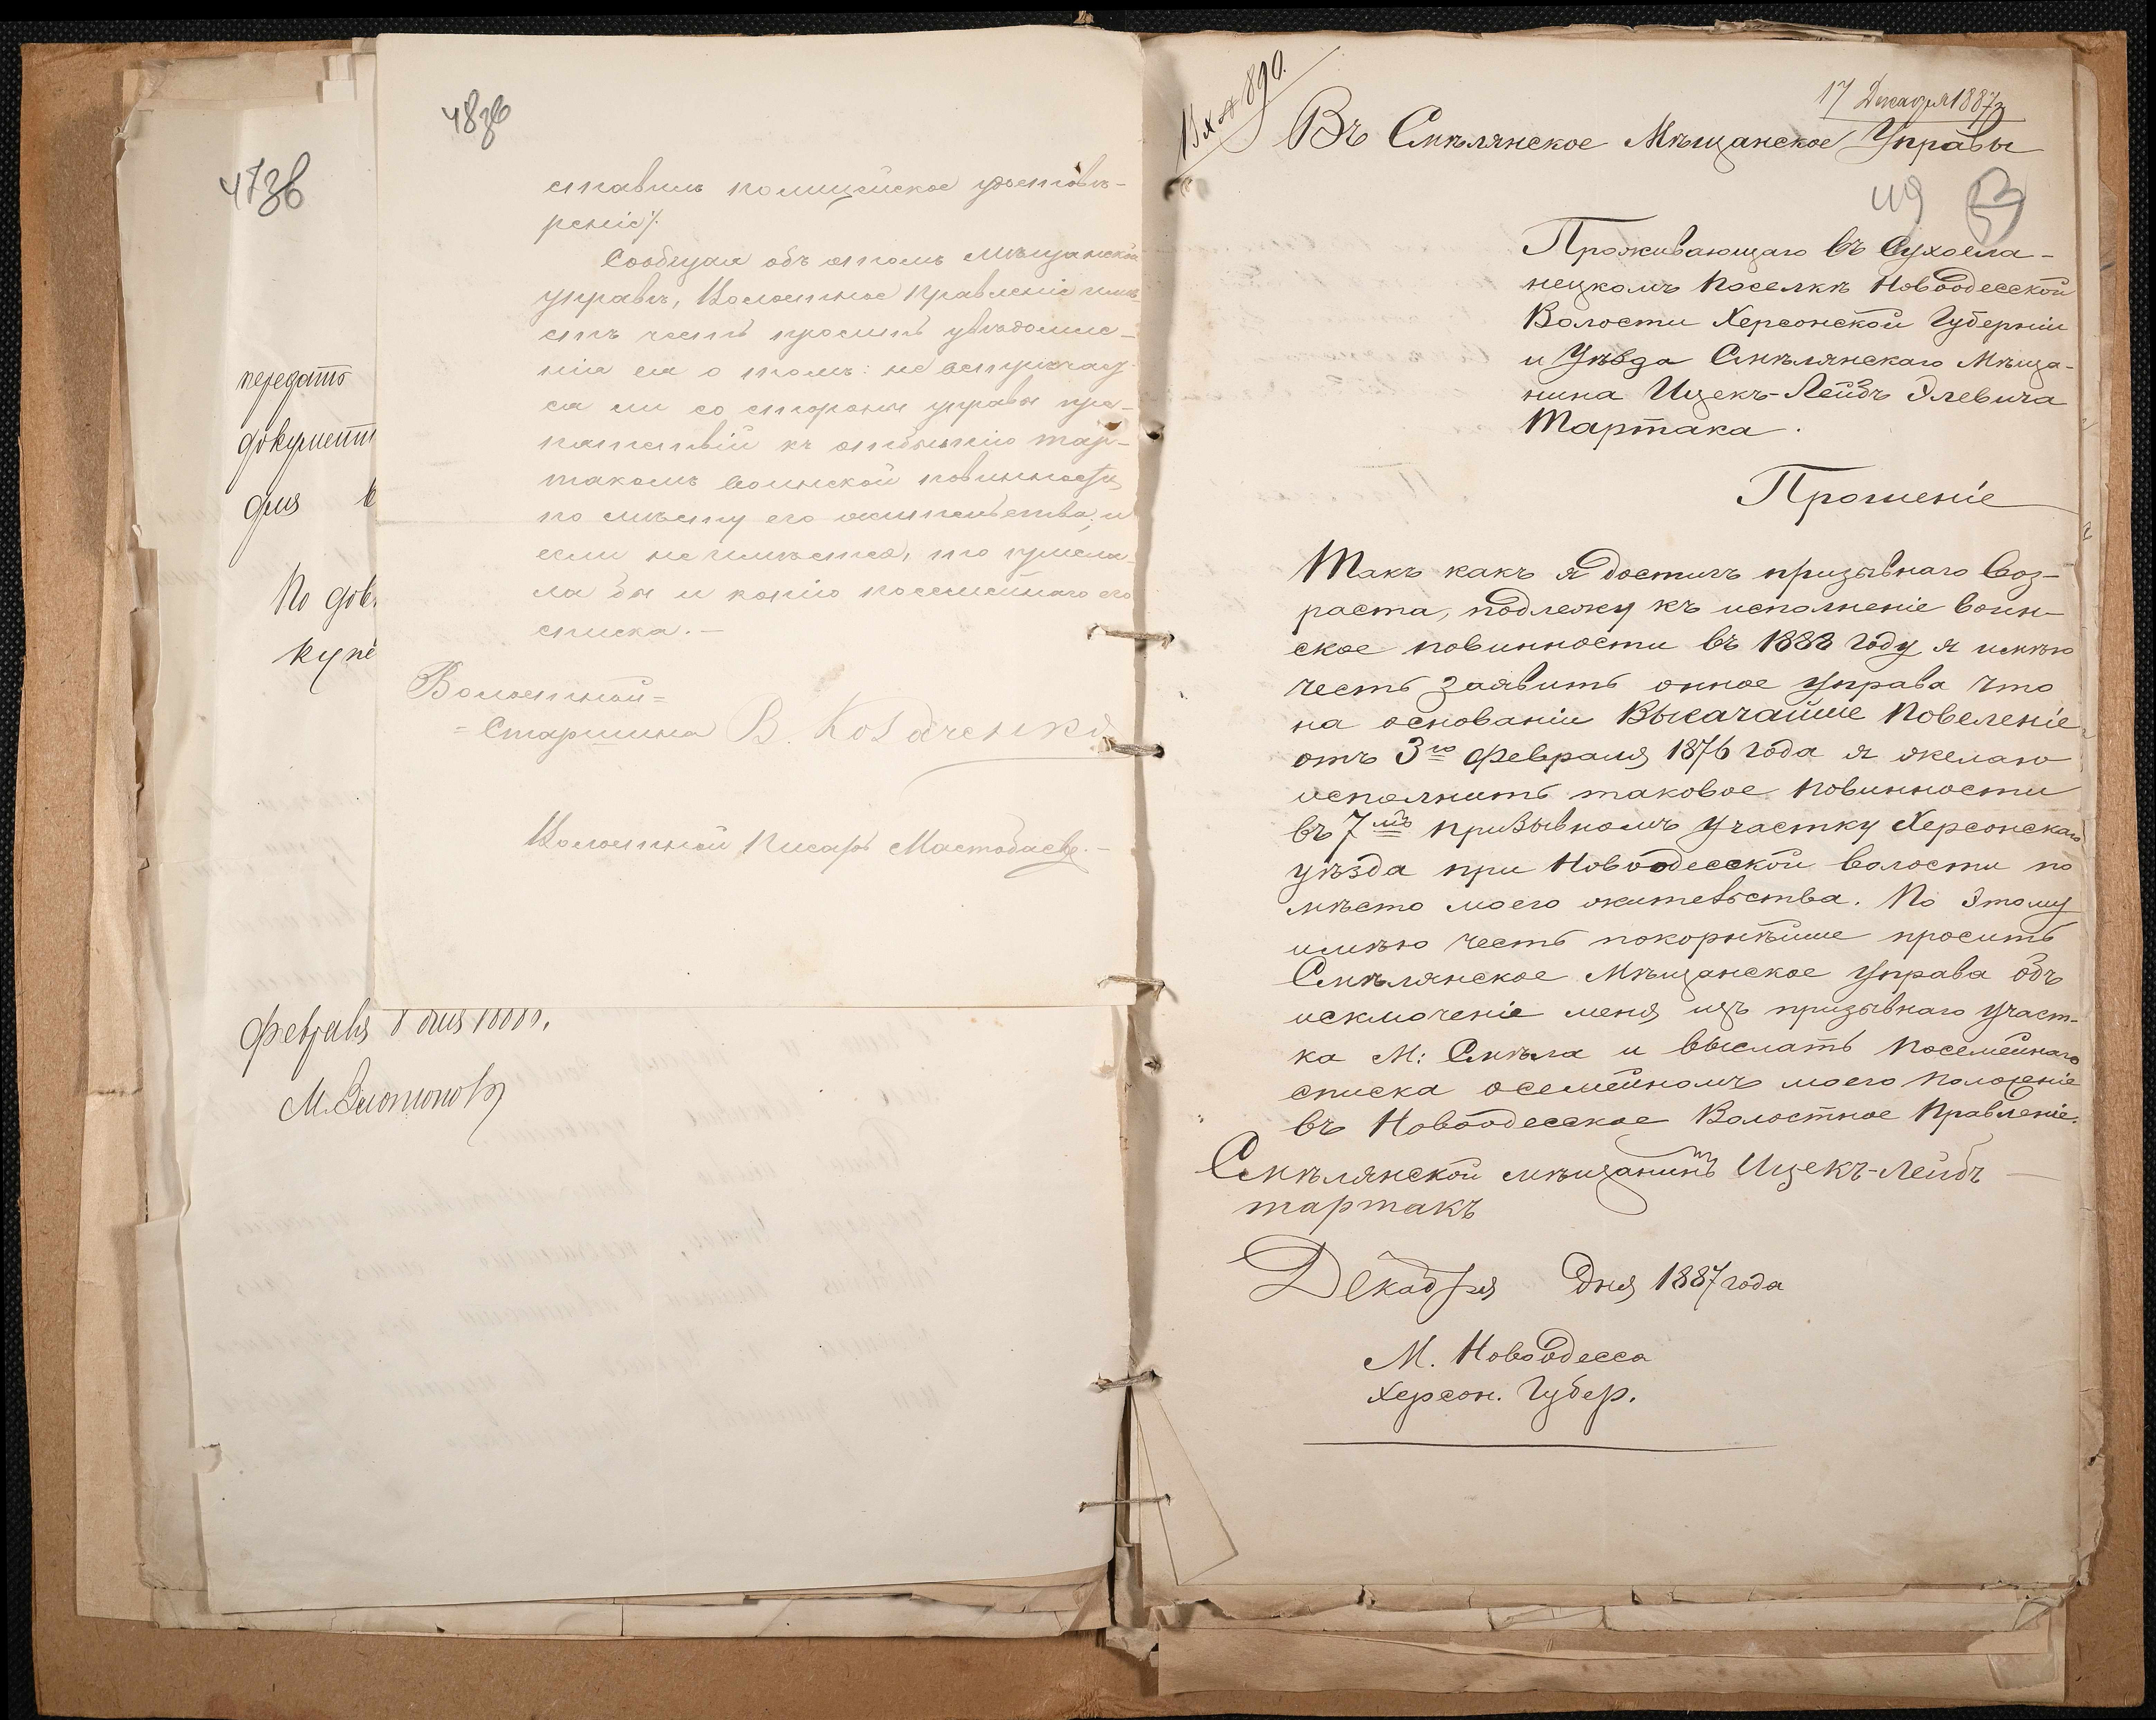 47зв
передать
документ
для в
По дов.
купе
Февраля 8 дня 1888 г.
48зв
ставилъ полицейское удостовѣ-
реніе/.
Сообщая объ этомъ Мѣщанской
управѣ, Волостное Правленіе имѣ
етъ честь просить увѣдомле-
нія ея о томъ: не встрѣчает
ся ли со стороны управы пре-
пятствій къ отбытію Тар-
такомъ воинской повинности
по мѣсту его жительства; и
если не имѣется, то
ла бы и копію посемейнаго его
списка. —
Волостной =
= Старшина В.
Волостной Писарь
Вх № 890.
17 Декабря 1887 г
Въ Смѣлянское Мѣщанское Управы
49
Проживающаго въ Сухоела-
нецкомъ поселкѣ Новоодесской
Волости Херсонской Губерніи
и Уѣзда Смѣлянскаго Мѣща-
нина Ицекъ-Лейбъ Элевича
Тартака.
Прошеніе
Такъ какъ я достигъ призывнаго воз-
раста, подлежу къ исполненіе воин-
ское повинности въ 1888 году я имѣю
честь заявить онное управа что
на основаніи Высачайше Повеленіе
отъ 3го Февраля 1876 года я желаю
исполнить таковое повинности
въ 7мъ призывномъ участку Херсонскаго
уѣзда при Новоодесской волости по
мѣсто моего жительства. По этому
имѣю честь покорнѣйше просить
Смѣлянское Мѣщанское Управа объ
исключеніе меня изъ призывнаго участ-
ка М: Смѣла и выслать посемейнаго
списка осемейномъ моего положеніе
въ Новоодесское Волостное Правленіе.
Смѣлянской мѣщанинъ Ицекъ-Лейбъ
тартакъ
Декабря дня 1887 года
М. Новоодесса
Херсон. Губер.